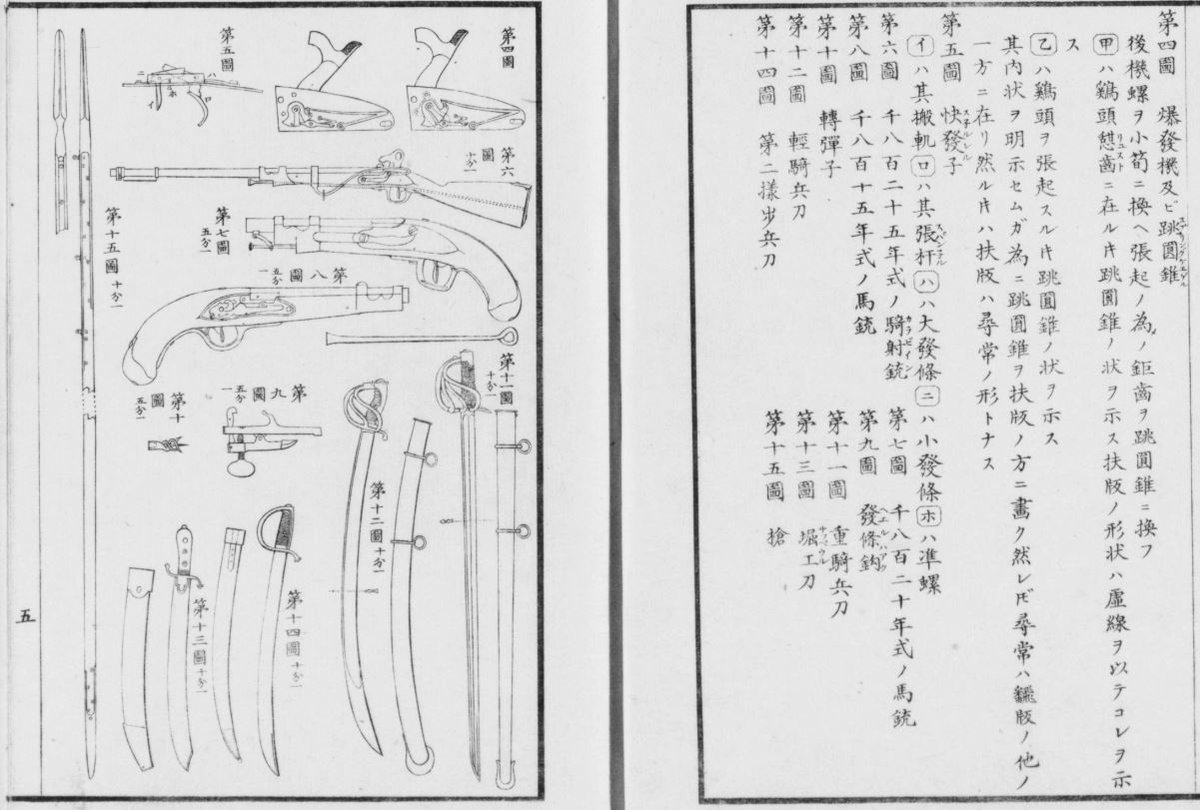 第四圖　爆發機及ビ跳圓錐
後機螺ヲ小筍ニ換ヘ張起ノ為メノ鉅齒ヲ跳圓錐ニ換フ
甲ハ鷄頭憇齒ニ在ルキ跳圓錐ノ状ヲ示ス扶版ノ形状ハ虛線ヲ以テコレヲ示
ス
乙ハ鷄頭ヲ張起スルキ跳圓錐ノ状ヲ示ス
其内状ヲ明示セムガ為ニ跳圓錐ヲ扶版ノ方ニ畫ク然レ𪜈尋常ハ版ノ他ノ
一方ニ在リ然ルキハ扶版ハ尋常ノ形トナス
第五圖　快發子
イハ其搬軌ロハ其張杆ハハ大發條ニハ小發條ホハ準螺
第六圖　千八百二十五年式ノ騎射銃　第七圖　千八百二十年式ノ馬銃
第八圖　千八百十五年式ノ馬銃　第九圖　發條鈎
第十圖　轉彈子　第十一圖　重騎兵刀
第十二圖　輕騎兵刀　第十三圖　堀工刀
第十四圖　第二樣步兵刀　第十五圖　槍
第四圖
第五圖
イ
ロ
ハ
ニ
ホ
第六圖　十分一
第七圖　五分一
第八圖　五分一
第九圖　五分一
第十圖　五分一
第十一圖　十分一
第十二圖　十分一
第十三圖　十分一
第十四圖　十分一
第十五圖　十分一
五